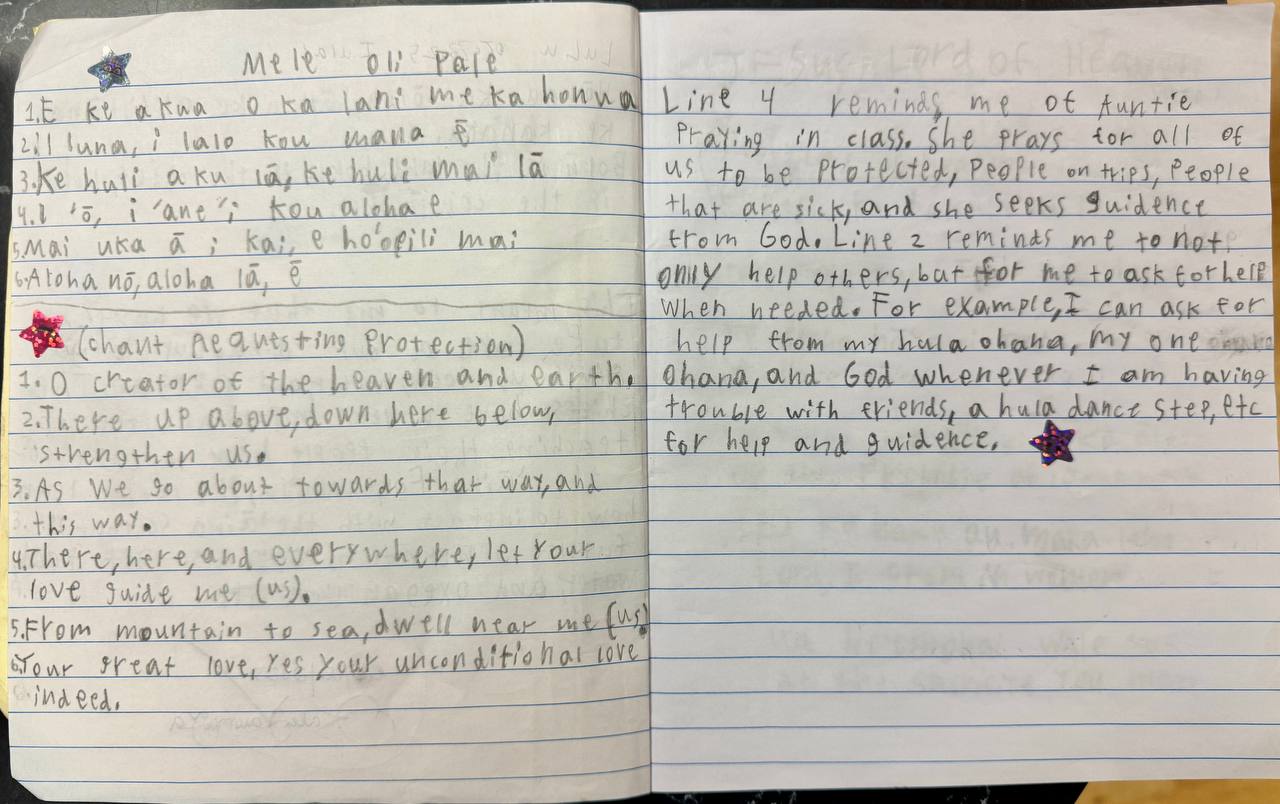 Mele Oli Pale
1.E ke akua o ka lani me ka honua
2.I luna, i lalo kou mana Ē
3.Ke huli aku lā, ke huli mai lā
4.I 'ō, i 'ane'i kou aloha e
5.Mai uka ā i kai, e ho'opili mai
6.Aloha nō, aloha lā, ē
(Chant Requesting Protection)
1. O creator of the heaven and earth.
2.There up above, down here below,
strengthen us.
3.As We go about towards that way, and
this way.
4.There, here, and everywhere, let your
love guide me (us).
5.From mountain to sea, dwell near me (us).
6.Your great love, Yes your unconditional love
indeed.
Line 4 reminds me of Auntie
Praying in class. She prays for all of
us to be protected, People on trips, People
that are sick, and she seeks guidence
from God. Line 2 reminds me to not
only help others, but for me to ask for help
When needed. For example, I can ask for
help from my hula ohana, my one
Ohana, and God whenever I am having
trouble with friends, a hula dance step, etc
for help and guidence.